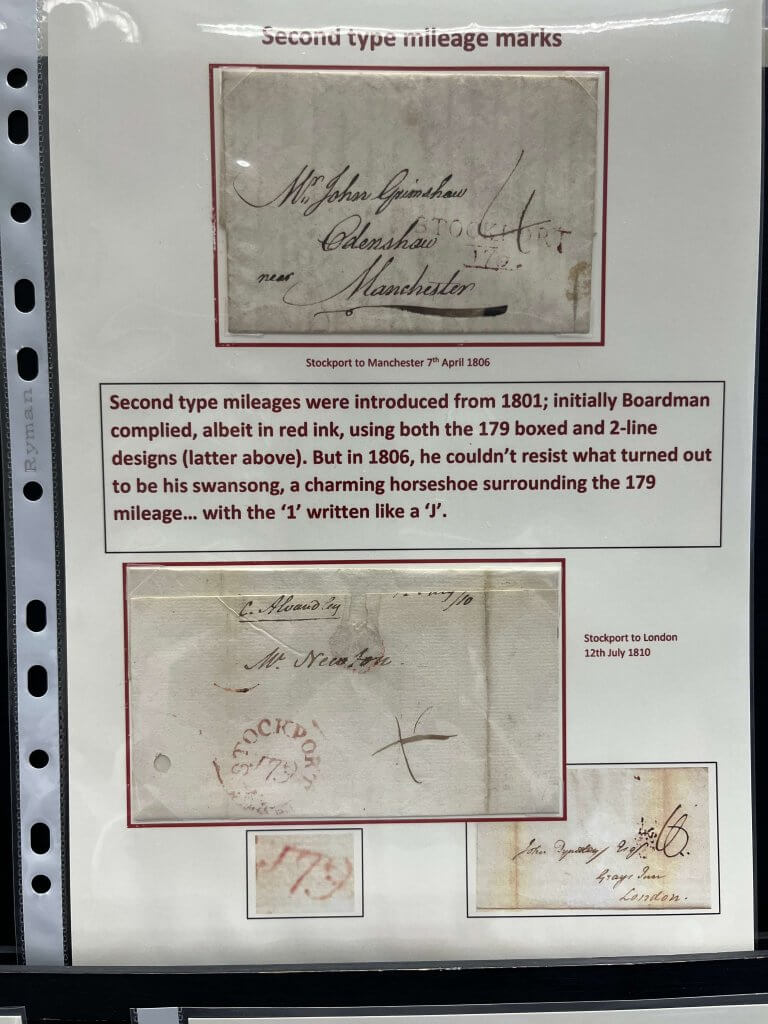 Second type mileage marks
Mr. John Grimshaw
Odenshaw
STOCKPORT
179.
near Manchester
4
Stockport to Manchester 7th April 1806
Second type mileages were introduced from 1801; initially Boardman
complied, albeit in red ink, using both the 179 boxed and 2-line
designs (latter above). But in 1806, he couldn't resist what turned out
to be his swansong, a charming horseshoe surrounding the 179
mileage... with the '1' written like a 'J'.
/10
Mr. Newton.
STOCKPORT
179
Stockport to London
12th July 1810
179
John Esqr
6
Grays Inn
London.
Ryman